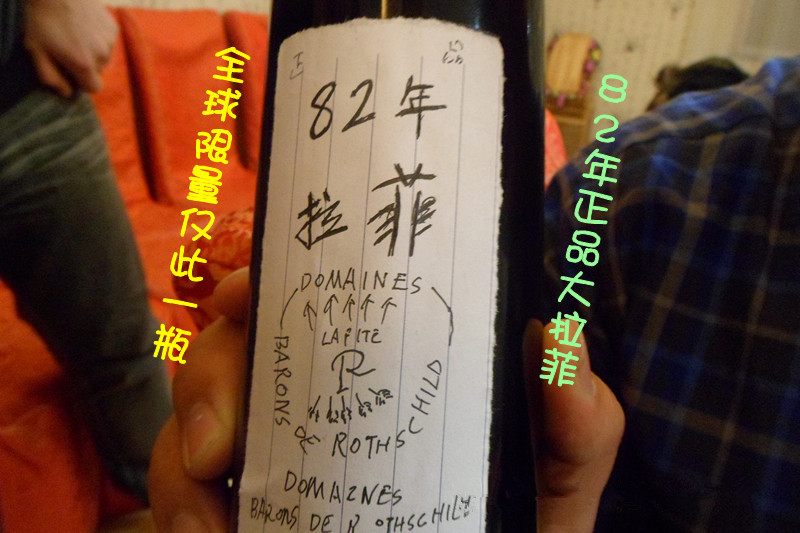 全球限量仅此一瓶
82年正品大拉菲
正
82年
拉菲
DOMAINES
LAFITE
R
BARONS
DE ROTHSCHILD
DOMAINES
BARONS DE ROTHSCHILD